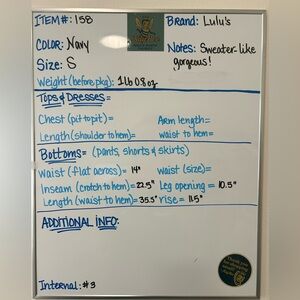 ITEM#: 158
Brand: Lulu's
COLOR: Navy
Notes: Sweater-like gorgeous!
Size: S
Weight (before pkg): 1lb 0.8oz
Tops & Dresses=
Chest (pit to pit)=
Arm length=
Length (shoulder to hem)=
waist to hem=
Bottoms= (pants, shorts & skirts)
Waist (flat across)= 14"
waist (size)=
Inseam (crotch to hem)= 22.5"
Leg opening = 10.5"
Length (waist to hem)= 35.5"
rise= 11.5"
ADDITIONAL INFO:
Internal: #3